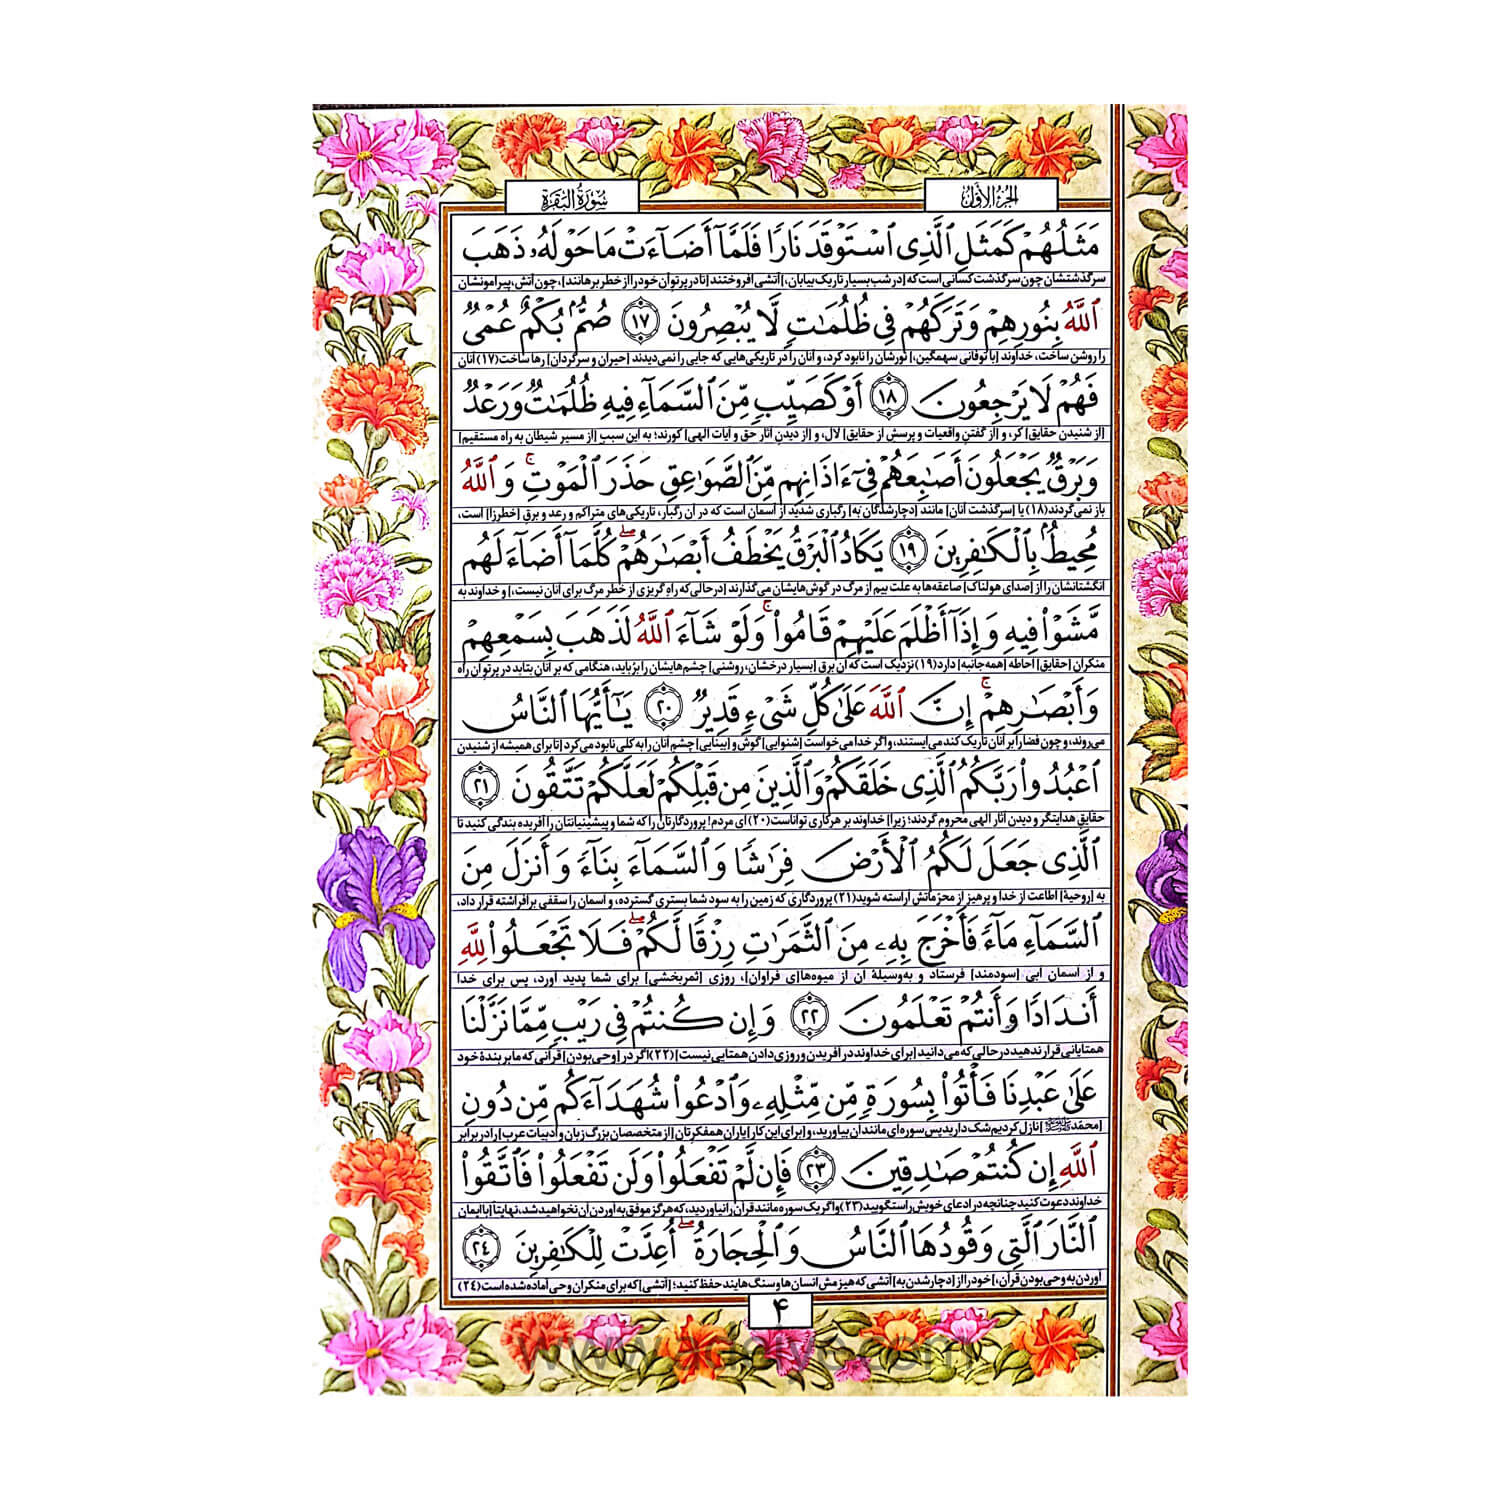 الجزء الأول
سورة البقرة
مَثَلُهُمْ كَمَثَلِ الَّذِي اسْتَوْقَدَ نَارًا فَلَمَّا أَضَاءَتْ مَا حَوْلَهُ ذَهَبَ
سرگذشتشان چون سرگذشت کسانی است که [در شب بسیار تاریک بیابان،] آتشی افروختند [تا در پرتو آن خود را از خطر برهانند]، چون آتش، پیرامونشان
اللَّهُ بِنُورِهِمْ وَتَرَكَهُمْ فِي ظُلُمَاتٍ لَّا يُبْصِرُونَ ١٧ صُمٌّ بُكْمٌ عُمْيٌ
را روشن ساخت، خداوند [با توفانی سهمگین،] نورشان را نابود کرد، و آنان را در تاریکی‌هایی که جایی را نمی‌دیدند [حیران و سرگردان] رها ساخت(۱۷) آنان
فَهُمْ لَا يَرْجِعُونَ ١٨ أَوْ كَصَيِّبٍ مِّنَ السَّمَاءِ فِيهِ ظُلُمَاتٌ وَرَعْدٌ
[از شنیدن حقایق] کر، و [از گفتن واقعیات و پرسش از حقایق] لال، و [از دیدن آثار حق و آیات الهی] کورند؛ به این سبب [از مسیر شیطان به راه مستقیم]
وَبَرْقٌ يَجْعَلُونَ أَصَابِعَهُمْ فِي آذَانِهِم مِّنَ الصَّوَاعِقِ حَذَرَ الْمَوْتِ ۚ وَاللَّهُ
باز نمی‌گردند(۱۸) یا [سرگذشت آنان] مانند [دچارشدگان به] رگباری شدید از آسمان است که در آن رگبار، تاریکی‌های متراکم و رعد و برق [خطرزا] است،
مُحِيطٌ بِالْكَافِرِينَ ١٩ يَكَادُ الْبَرْقُ يَخْطَفُ أَبْصَارَهُمْ ۖ كُلَّمَا أَضَاءَ لَهُم
انگشتانشان را از [صدای هولناک] صاعقه‌ها به علت بیم از مرگ در گوش‌هایشان می‌گذارند [درحالی که راه گریزی از خطر مرگ برای آنان نیست،] و خداوند به
مَّشَوْا فِيهِ وَإِذَا أَظْلَمَ عَلَيْهِمْ قَامُوا ۚ وَلَوْ شَاءَ اللَّهُ لَذَهَبَ بِسَمْعِهِمْ
منکران [حقایق] احاطه [همه‌جانبه] دارد(۱۹) نزدیک است که آن برق [بسیار درخشان، روشنی] چشم‌هایشان را برُباید، هنگامی که بر آنان بتابد در پرتو آن راه
وَأَبْصَارِهِمْ ۚ إِنَّ اللَّهَ عَلَىٰ كُلِّ شَيْءٍ قَدِيرٌ ٢٠ يَا أَيُّهَا النَّاسُ
می‌روند، و چون فضا را بر آنان تاریک کند می‌ایستند، و اگر خدا می‌خواست [شنوایی] گوش و [بینایی] چشم آنان را به کلی نابود می‌کرد [تا برای همیشه از شنیدن
اعْبُدُوا رَبَّكُمُ الَّذِي خَلَقَكُمْ وَالَّذِينَ مِن قَبْلِكُمْ لَعَلَّكُمْ تَتَّقُونَ ٢١
حقایق هدایتگر و دیدن آثار الهی محروم گردند؛ زیرا] خداوند بر هر کاری تواناست(۲۰) ای مردم! پروردگارتان را که شما و پیشینیانتان را آفریده بندگی کنید تا
الَّذِي جَعَلَ لَكُمُ الْأَرْضَ فِرَاشًا وَالسَّمَاءَ بِنَاءً وَأَنزَلَ مِنَ
به [روحیهٔ] اطاعت از خدا و پرهیز از محرّماتش آراسته شوید(۲۱) پروردگاری که زمین را به سود شما بستری گسترده، و آسمان را سقفی برافراشته قرار داد،
السَّمَاءِ مَاءً فَأَخْرَجَ بِهِ مِنَ الثَّمَرَاتِ رِزْقًا لَّكُمْ ۖ فَلَا تَجْعَلُوا لِلَّهِ
و از آسمان آبی [سودمند] فرستاد و به‌وسیلهٔ آن از میوه‌ها[ی فراوان]، روزی [ثمربخشی] برای شما پدید آورد، پس برای خدا
أَندَادًا وَأَنتُمْ تَعْلَمُونَ ٢٢ وَإِن كُنتُمْ فِي رَيْبٍ مِّمَّا نَزَّلْنَا
همتایانی قرار ندهید در حالی که می‌دانید [برای خداوند در آفریدن و روزی دادن همتایی نیست](۲۲) اگر در [وحی بودن] قرآنی که ما بر بندهٔ خود
عَلَىٰ عَبْدِنَا فَأْتُوا بِسُورَةٍ مِّن مِّثْلِهِ وَادْعُوا شُهَدَاءَكُم مِّن دُونِ
[محمّد ﷺ] نازل کردیم شک دارید پس سوره‌ای مانند آن بیاورید، و [برای این کار] یاران همفکرتان [از متخصصان بزرگ زبان و ادبیات عرب] را در برابر
اللَّهِ إِن كُنتُمْ صَادِقِينَ ٢٣ فَإِن لَّمْ تَفْعَلُوا وَلَن تَفْعَلُوا فَاتَّقُوا
خداوند دعوت کنید چنانچه در ادعای خویش راستگویید(۲۳) و اگر یک سوره مانند قرآن را نیاوردید، که هرگز موفق به آوردن آن نخواهید شد، نهایتاً [با ایمان
النَّارَ الَّتِي وَقُودُهَا النَّاسُ وَالْحِجَارَةُ ۖ أُعِدَّتْ لِلْكَافِرِينَ ٢٤
آوردن به وحی بودن قرآن،] خود را از [دچار شدن به] آتشی که هیزمش انسان‌ها و سنگ‌هایند حفظ کنید؛ [آتشی] که برای منکران وحی آماده شده است(۲۴)
۴